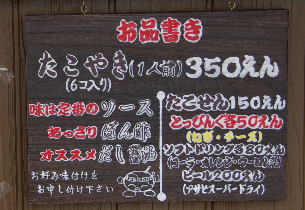 お品書き
たこやき(1人前)350えん
(6コ入り)
味は定番のソース
あっさりぽん酢
オススメだし醤油
お好み味付けを
お申し付け下さい
たこせん150えん
とっぴんぐ各50えん
(ねぎ・チーズ)
ソフトドリンク各80えん
ビール200えん
(アサヒスーパードライ)